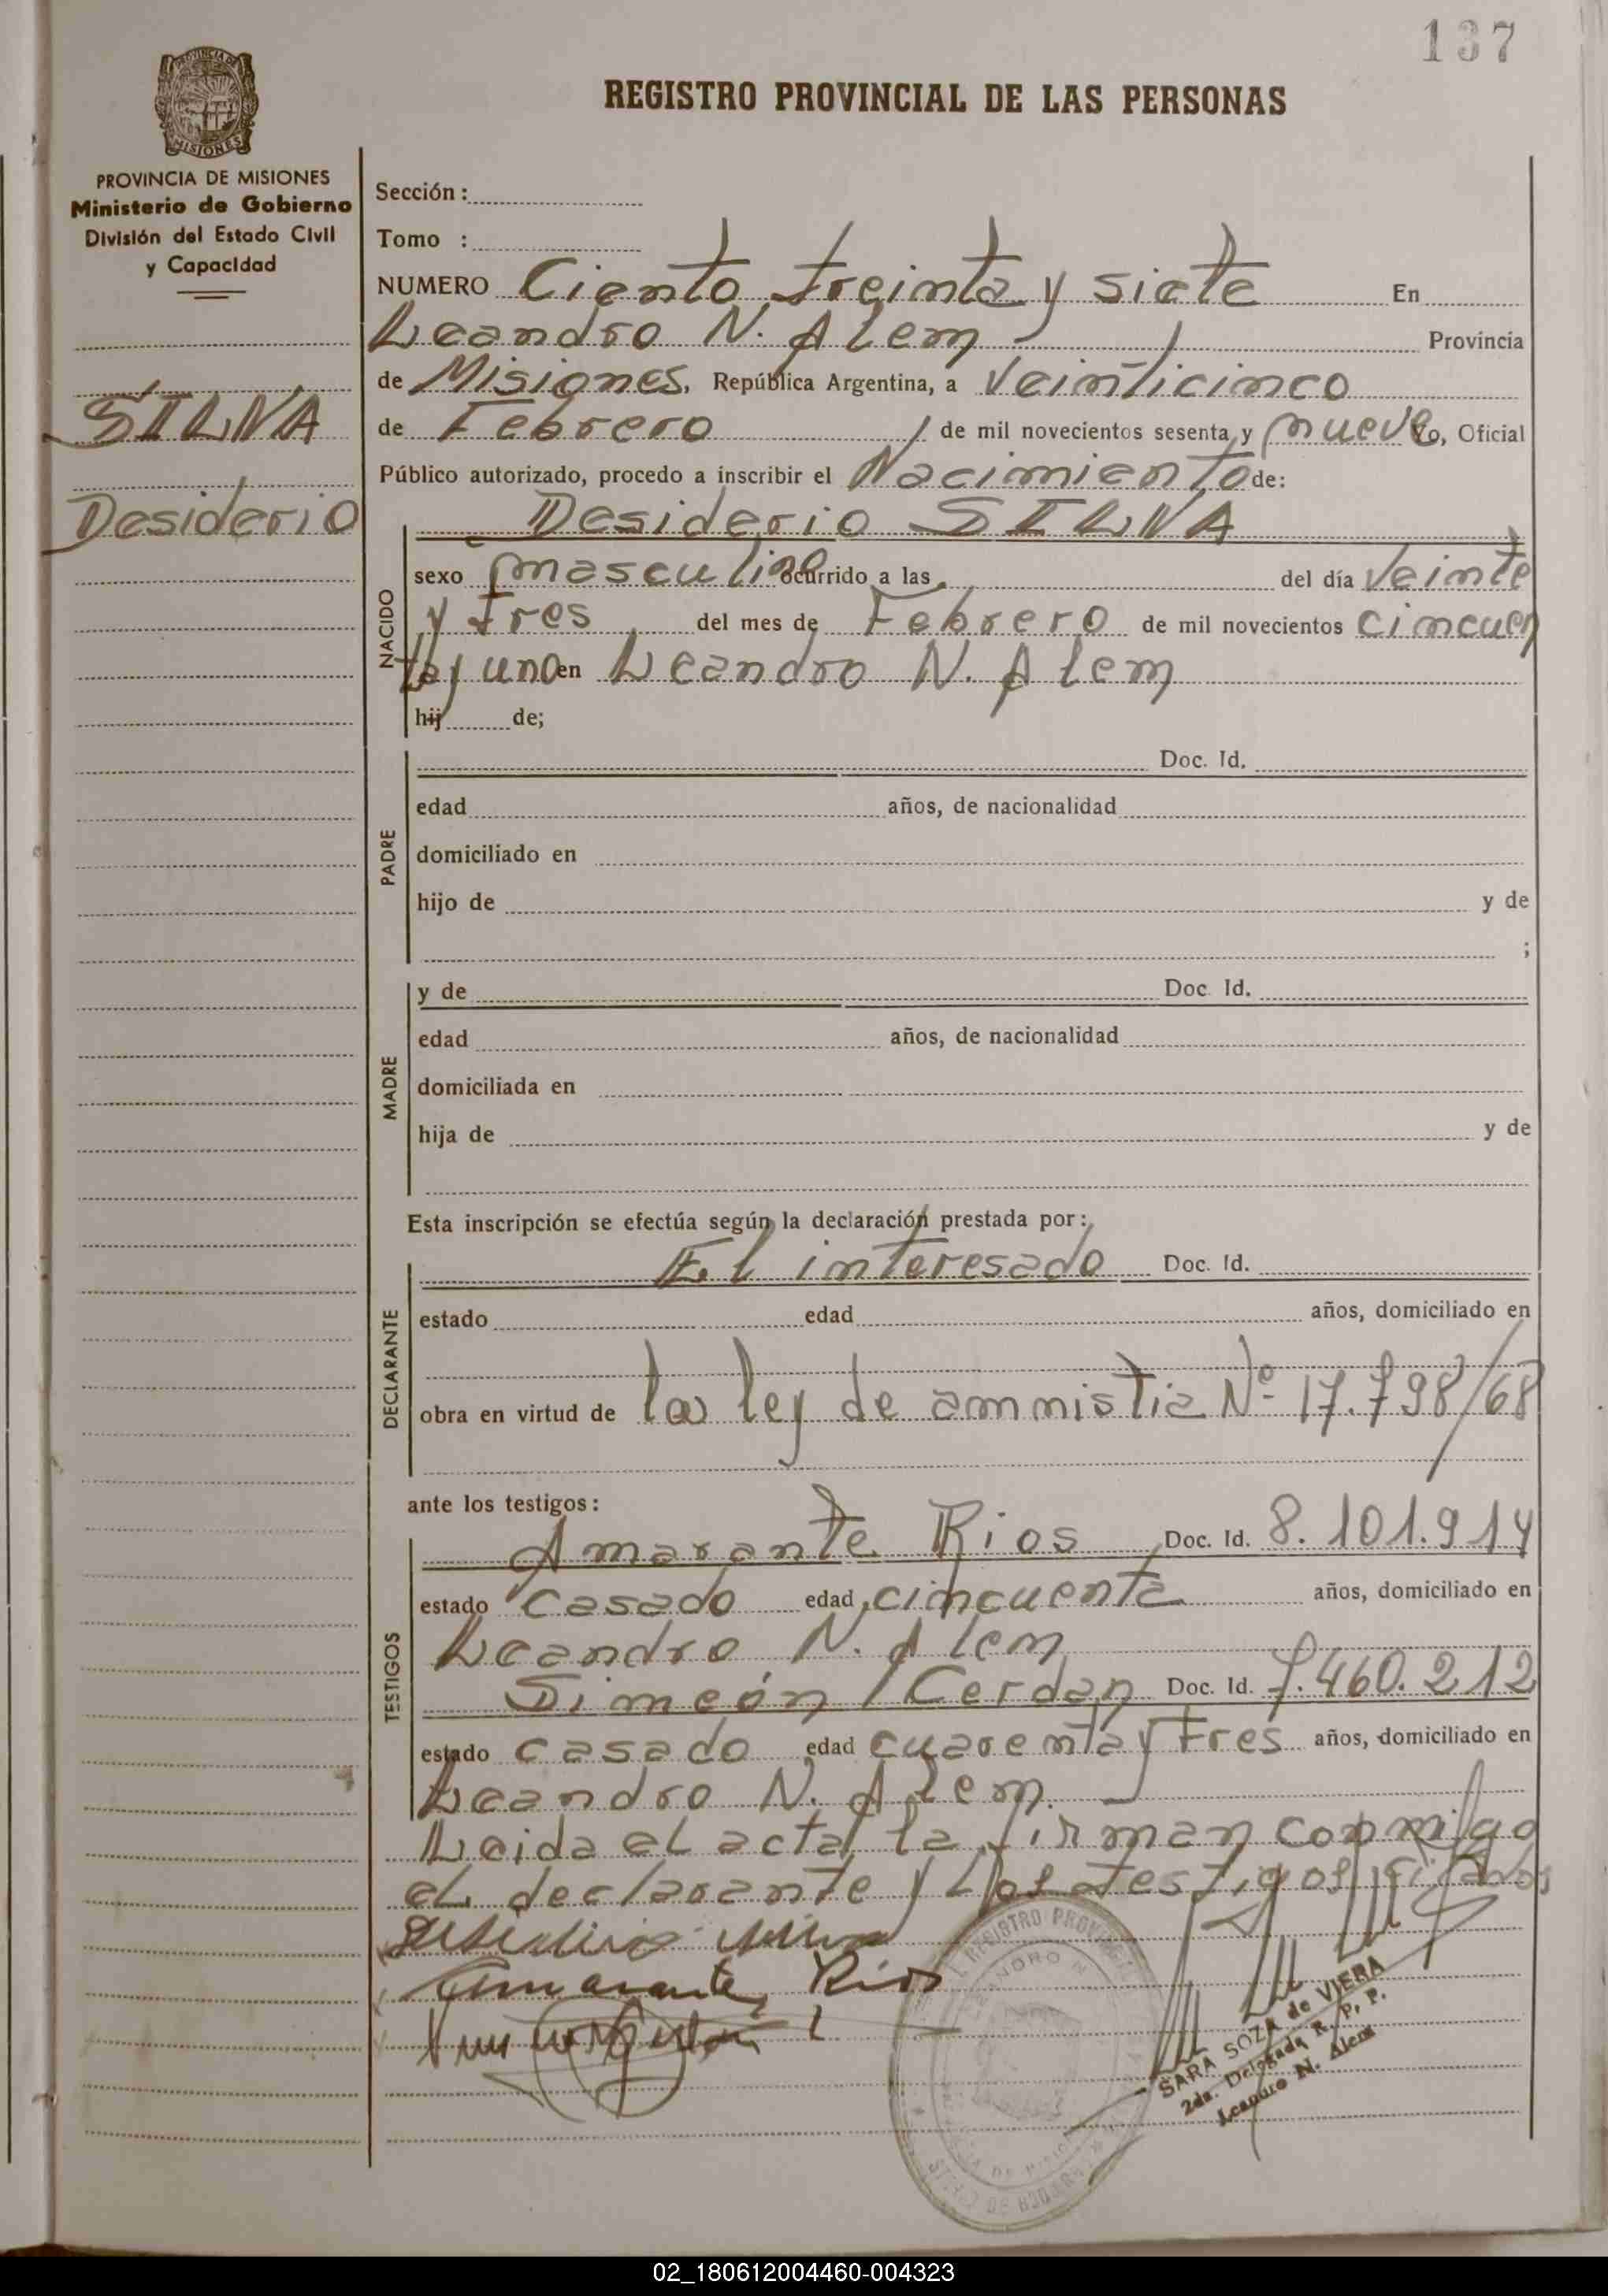 137
REGISTRO PROVINCIAL DE LAS PERSONAS
MISIONES
PROVINCIA DE MISIONES
Ministerio de Gobierno
División del Estado Civil
y Capacidad
SILVA
Desiderio
Sección :
Tomo :
NUMERO Ciento treinta y siete En
Leandro N. Alem Provincia
de Misiones, República Argentina, a Veinticinco
de Febrero de mil novecientos sesenta y nueve Yo, Oficial
Público autorizado, procedo a inscribir el Nacimiento de:
NACIDO
Desiderio SILVA
sexo masculino ocurrido a las del día Veinte
y tres del mes de Febrero de mil novecientos cincuen
ta y uno en Leandro N. Alem
hij de;
PADRE
Doc. Id.
edad años, de nacionalidad
domiciliado en
hijo de y de
;
MADRE
y de Doc. Id.
edad años, de nacionalidad
domiciliada en
hija de y de
Esta inscripción se efectúa según la declaración prestada por:
DECLARANTE
El interesado Doc. Id.
estado edad años, domiciliado en
obra en virtud de la ley de ammistia Nº 17.798/68
ante los testigos:
TESTIGOS
Amarante Rios Doc. Id. 8.101.914
estado casado edad cincuenta años, domiciliado en
Leandro N. Alem
Simeón Cerdan Doc. Id. 7.460.212
estado casado edad cuarenta y tres años, domiciliado en
Leandro N. Alem.
Leida el acta la firman conmigo
el declarante y los testigos citados
Desiderio Silva
Amarante Rios
REGISTRO PROVINCIAL
SARA SOZA de VIERA
2da. Delegada R. P. P.
Leandro N. Alem
02_180612004460-004323